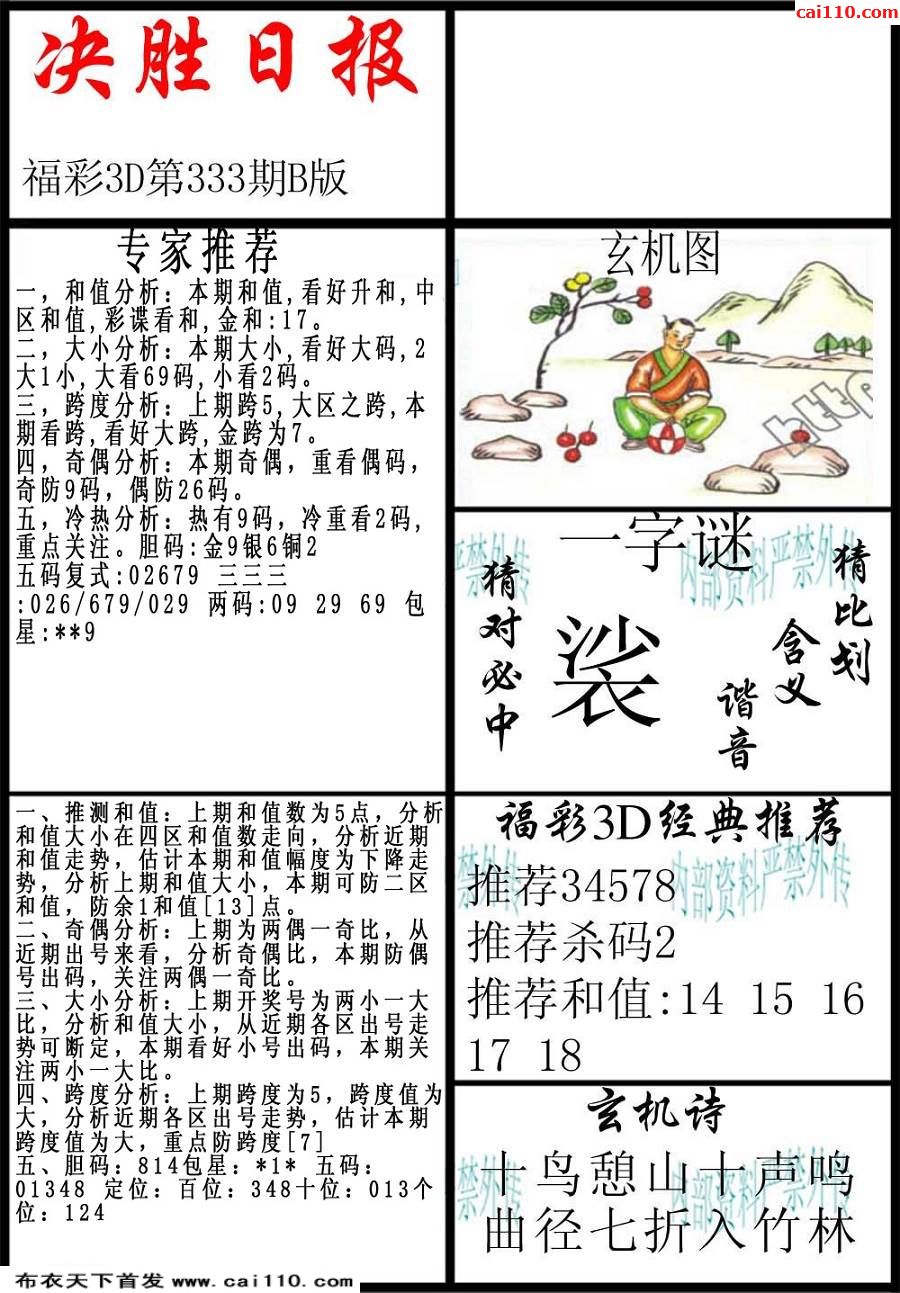 cai110.com
决胜日报
福彩3D第333期B版
专家推荐
一，和值分析：本期和值,看好升和,中
区和值,彩谍看和,金和:17。
二，大小分析：本期大小,看好大码,2
大1小,大看69码,小看2码。
三，跨度分析：上期跨5,大区之跨,本
期看跨,看好大跨,金跨为7。
四，奇偶分析：本期奇偶，重看偶码，
奇防9码，偶防26码。
五，冷热分析：热有9码，冷重看2码,
重点关注。胆码:金9银6铜2
五码复式:02679 三三三
:026/679/029 两码:09 29 69 包
星:**9
玄机图
http
一字谜
内部资料严禁外传
猜对必中
裟
谐音
含义
猜比划
一、推测和值：上期和值数为5点，分析
和值大小在四区和值数走向，分析近期
和值走势，估计本期和值幅度为下降走
势，分析上期和值大小，本期可防二区
和值，防余1和值[13]点。
二、奇偶分析：上期为两偶一奇比，从
近期出号来看，分析奇偶比，本期防偶
号出码，关注两偶一奇比。
三、大小分析：上期开奖号为两小一大
比，分析和值大小，从近期各区出号走
势可断定，本期看好小号出码，本期关
注两小一大比。
四、跨度分析：上期跨度为5，跨度值为
大，分析近期各区出号走势，估计本期
跨度值为大，重点防跨度[7]
五、胆码：814包星：*1* 五码：
01348 定位：百位：348十位：013个
位：124
福彩3D经典推荐
内部资料严禁外传
推荐34578
推荐杀码2
推荐和值:14 15 16
17 18
玄机诗
内部资料严禁外传
十鸟憩山十声鸣
曲径七折入竹林
布衣天下首发 www.cai110.com